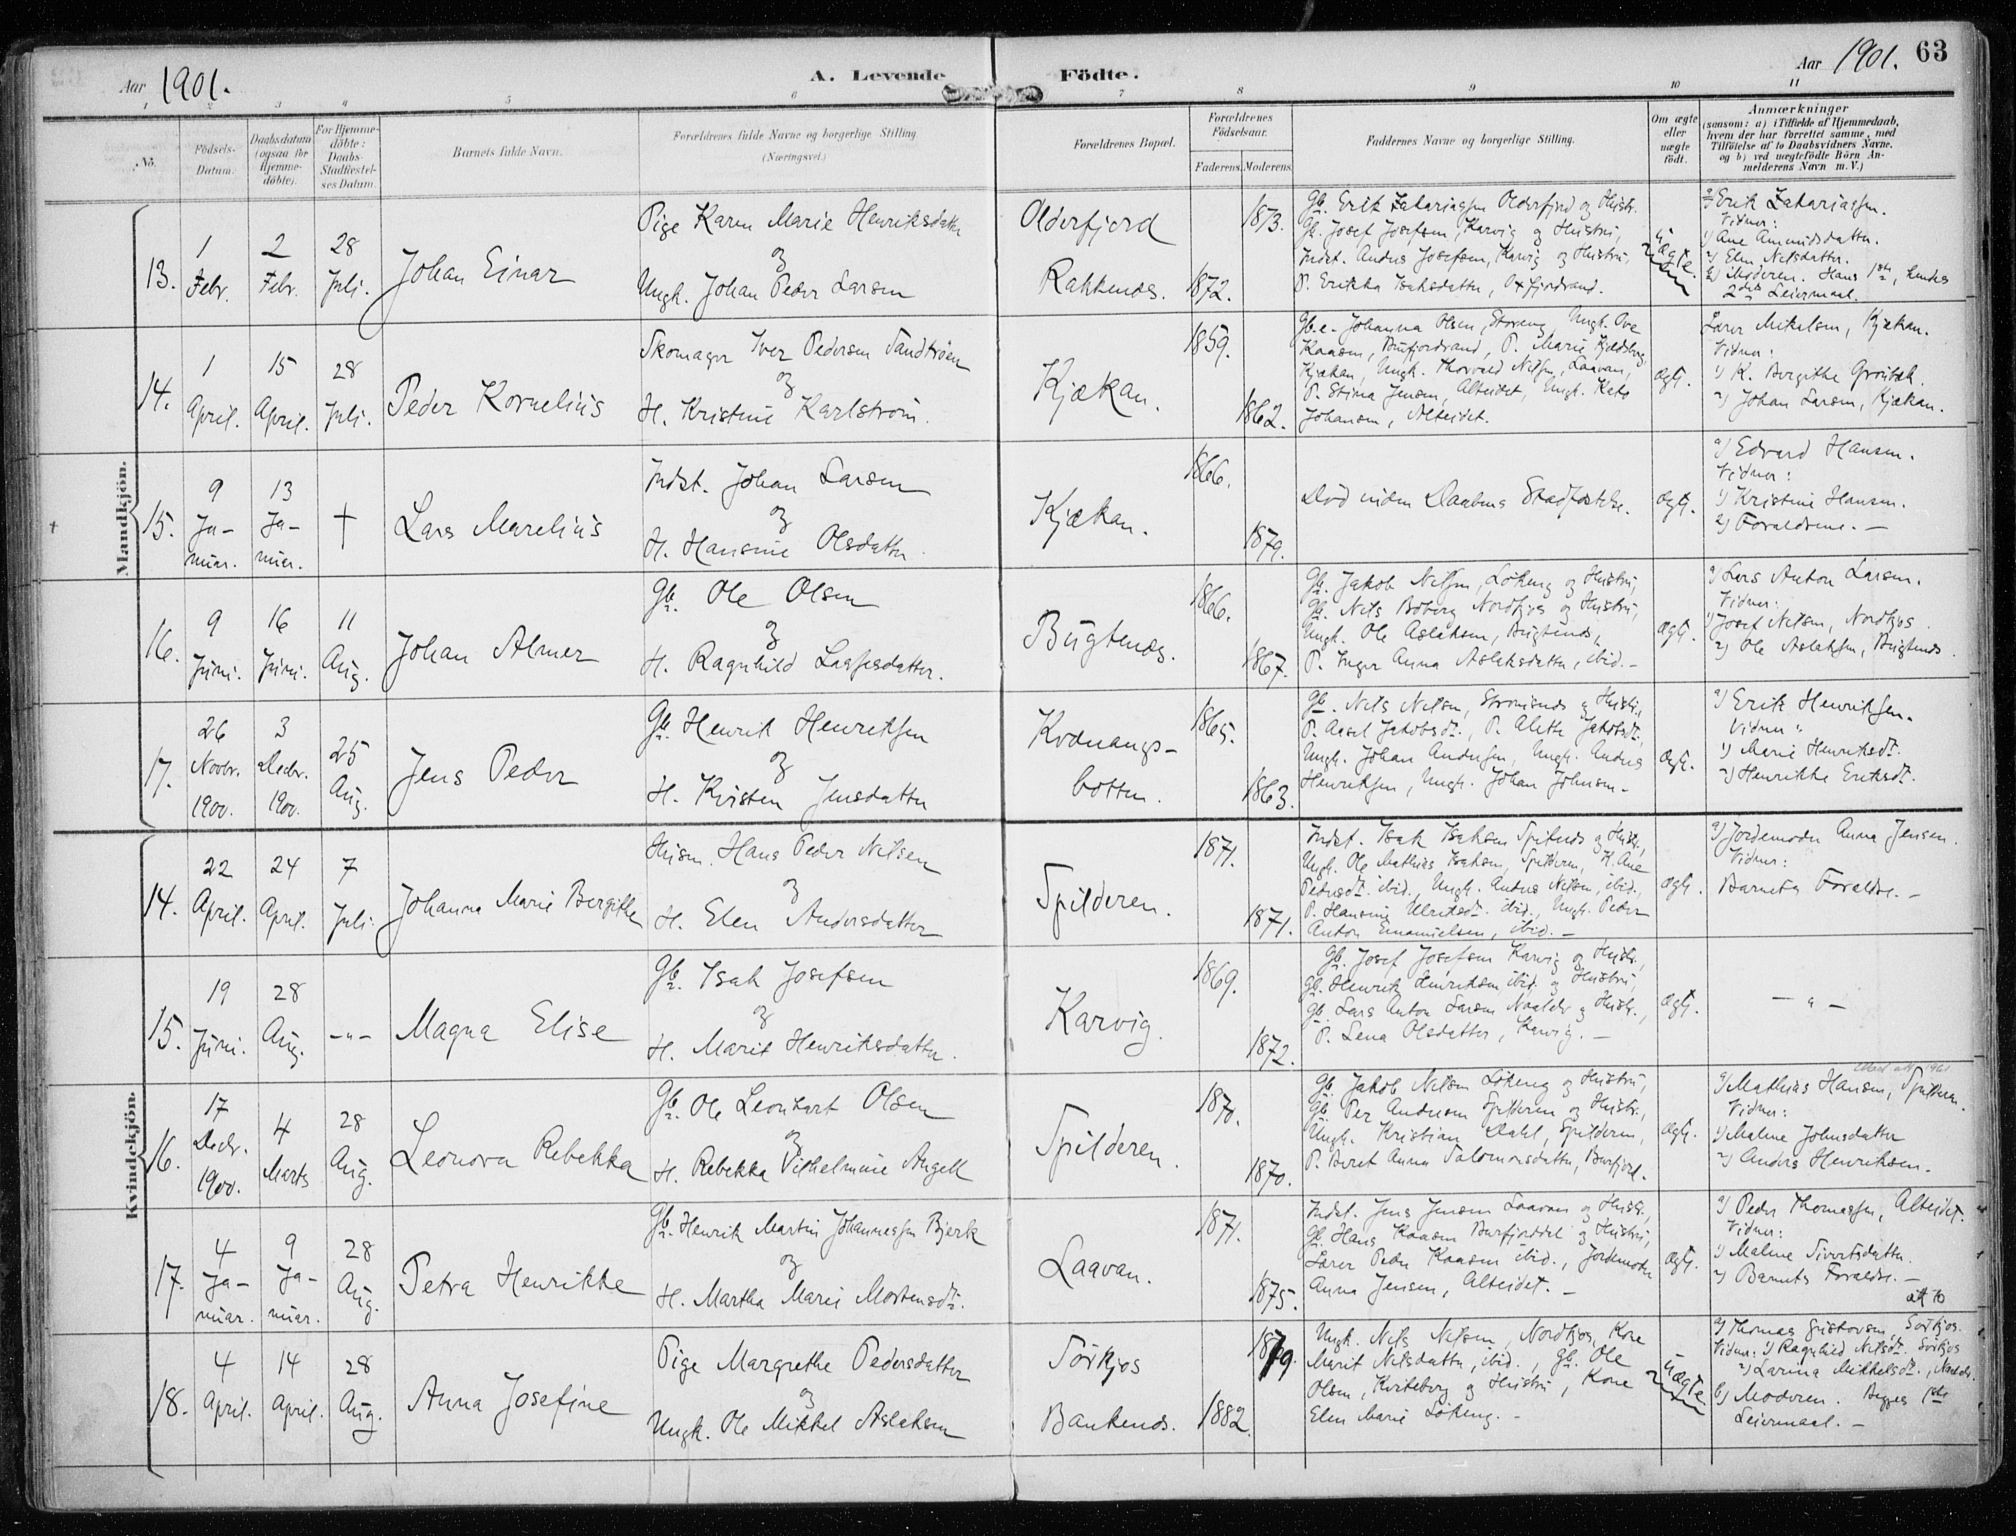 Aar 1901.
A. Levende Födte.
Aar 1901. 63
1 2 3 4 5 6 7 8 9 10 11
No.
Födsels-
Datum.
Daabsdatum
(ogsaa for
Hjemme-
döbte).
For Hjemme-
döbte:
Daabs-
Stadfæstel-
ses Datum.
Barnets fulde Navn.
Forældrenes fulde Navne og borgerlige Stilling.
(Næringsvei.)
Forældrenes Bopæl.
Forældrenes
Födselsaar.
Faderens. Moderens.
Faddernes Navne og borgerlige Stilling.
Om ægte
eller
uægte
födt.
Anmærkninger
(saasom: a) i Tilfælde af Hjemmedaab,
hvem der har forrettet samme, med
Tilföielse af to Daabsvidners Navne.
og b) ved uægtefödte Börn An-
melderens Navn m. V.)
Mandkjön.
13.
1
Febr.
2
Febr.
28
Juli.
Johan Einar
Pige Karen Marie Henriksdatter
og
Ungk. Johan Peder Larsen
Olderfjord
Rakkenæs.
1872.
1873.
Gb. Erik Zakariassen Olderfjord og Hustr.
Gb. Josef Josefsen, Karvig og Hustru,
Indst. Anders Josefsen, Karvig og Hustru,
P. Erikka Isaksdatter, Oxfjordvand.
Uægte.
a) Erik Zakariassen.
Vidner:
1) Ane Amundsdatter.
2) Elen Nelsdatter.
b) Moderen. Hans 1ste, hendes
2det Leiermaal.
14.
1
April.
15
April.
28
Juli.
Peder Kornelius
Skomager Iver Pedersen Sandtrøen
og
H. Kristine Karlstrøm.
Kjækan.
1859.
1862.
Gbe. Johanna Olsen, Storeng, Ungk. Ove
Kaasen, Burfjordvand, P. Marie Kjeldsberg,
Kjækan, Ungk. Thorvald Nilsen, Laavan,
P. Stina Jensen, Alteidet, Ungk.
Johansen, Alteidet.
ægt.
Lærer Mikalsen, Kjækan.
Vidner:
1) K. Bergithe
2) Johan Larsen, Kjækan.
15.
9
Ja-
nuar.
13
Ja-
nuar.
†
Lars Marelius
Indst. Johan Larsen
og
H. Hansine Olsdatter.
Kjækan.
1866.
1879.
Død inden Daabens Stadfæstelse.
ægt.
a) Edvard Hansen.
Vidner:
1) Kristine Hansen.
2) Forældrene. —
16.
9
Juni.
16
Juni.
11
Aug.
Johan Almer
Gb. Ole Olsen
og
H. Ragnhild Lassesdatter.
Bugtenæs.
1866.
1867.
Gb. Jakob Nilsen, Løkeng og Hustru,
Gb. Nels Boberg Nordkjos og Hustru,
Ungk. Ole Aslaksen, Bugtenæs,
P. Inger Anna Aslaksdatter, ibid. —
ægt.
a) Lars Anton Larsen.
Vidner:
1) Josef Nelsen, Nordkjos.
2) Ole Aslaksen, Bugtenæs.
17.
26
Novbr.
1900.
3
Decbr.
1900.
25
Aug.
Jens Peder
Gb. Henrik Henriksen
og
H. Kirsten Jensdatter
Kvænangs-
botten.
1865.
1863.
Gb. Nels Nelsen, Strømenæs og Hustr.,
P. Aasel Jakobsdt., P. Alette Jakobsdt.,
Ungk. Johan Andersen, Ungk. Anders
Henriksen, Ungk. Johan Johnsen.
ægt.
a) Erik Henriksen.
Vidner:
1) Marie Henriksdt.
2) Henrikke Eriksdt.
Kvindekjön.
14.
22
April.
24
April.
7
Juli.
Johanna Marie Bergithe
Husm. Hans Peder Nelsen
og
H. Elen Andersdatter
Spilderen.
1871.
1871.
Indst. Isak Isaksen Spilnæs og Hustr.,
Ungk. Ole Mathias Isaksen, Spilderen, H. Ane
Pedersdt. ibid., Ungk. Anders Nelsen, ibid.,
P. Hansine Ulriksdt. ibid., Ungk. Peder
Anton Emanuelsen, ibid. —
ægt.
a) Jordemoder Anna Jensen.
Vidner:
Barnets Forældre. —
15.
19
Juni.
28
Aug.
-"-
Magna Elise
Gb. Isak Josefsen
og
H. Marit Henriksdatter.
Karvig.
1869.
1872.
Gb. Josef Josefsen Karvig og Hustr.,
Gb. Henrik Henriksen ibid. og Hustru,
Gb. Lars Anton Larsen og Hustr.,
P. Lena Olsdatter, Karvig. —
ægt.
— " —
16.
17
Decbr.
1900.
4
Marts
28
Aug.
Leonora Rebekka
Gb. Ole Leonhart Olsen
og
H. Rebekka Vilhelmine Angell
Spilderen.
1870.
1870.
Gb. Jakob Nelsen Løkeng og Hustru,
Gb. Per Andersen Spilderen og Hustr.,
Ungk. Kristian Dahl, Spilderen,
P. Beret Anna Salomonsdatter, Burfjord.
ægt.
a) Mathias Hansen, Spilderen.
Vidner:
1) Maline Johnsdatter
2) Anders Henriksen.
17.
4
Ja-
nuar.
9
Ja-
nuar.
28
Aug.
Petra Henrikke
Gb. Henrik Martin Johannessen Bjerk
og
H. Martha Marie Mortensdt.
Laavan.
1871.
1875.
Indst. Jens Jensen Laavan og Hustr.,
Gb. Hans Kaasen Burfjorddal og Hustru,
Lærer Peder Kaasen ibid., Jordemoder
Anna Jensen, Alteidet. —
ægt.
a) Peder Thomassen, Alteidet.
Vidner:
1) Maline Sivertsdatter.
2) Barnets Forældre. —
18.
4
April.
14
April.
28
Aug.
Anna Josefine
Pige Margrethe Pedersdatter
og
Ungk. Ole Mikkel Aslaksen
Sørkjos
Bankenæs.
1882.
1879.
Ungk. Nels Nelsen, Nordkjos, Kone
Marit Nelsdatter, ibid., Gb. Ole
Olsen, Kviteberg og Hustru, Kone
Elen Marie Løkeng. —
Uægte
a) Thomas Gustavsen, Sørkjos.
Vidner: 1) Ragnhild Nelsdt. Sørkjos
2) Larina Mikkelsdt.,
b) Moderen. Begges 1ste
Leiermaal. —